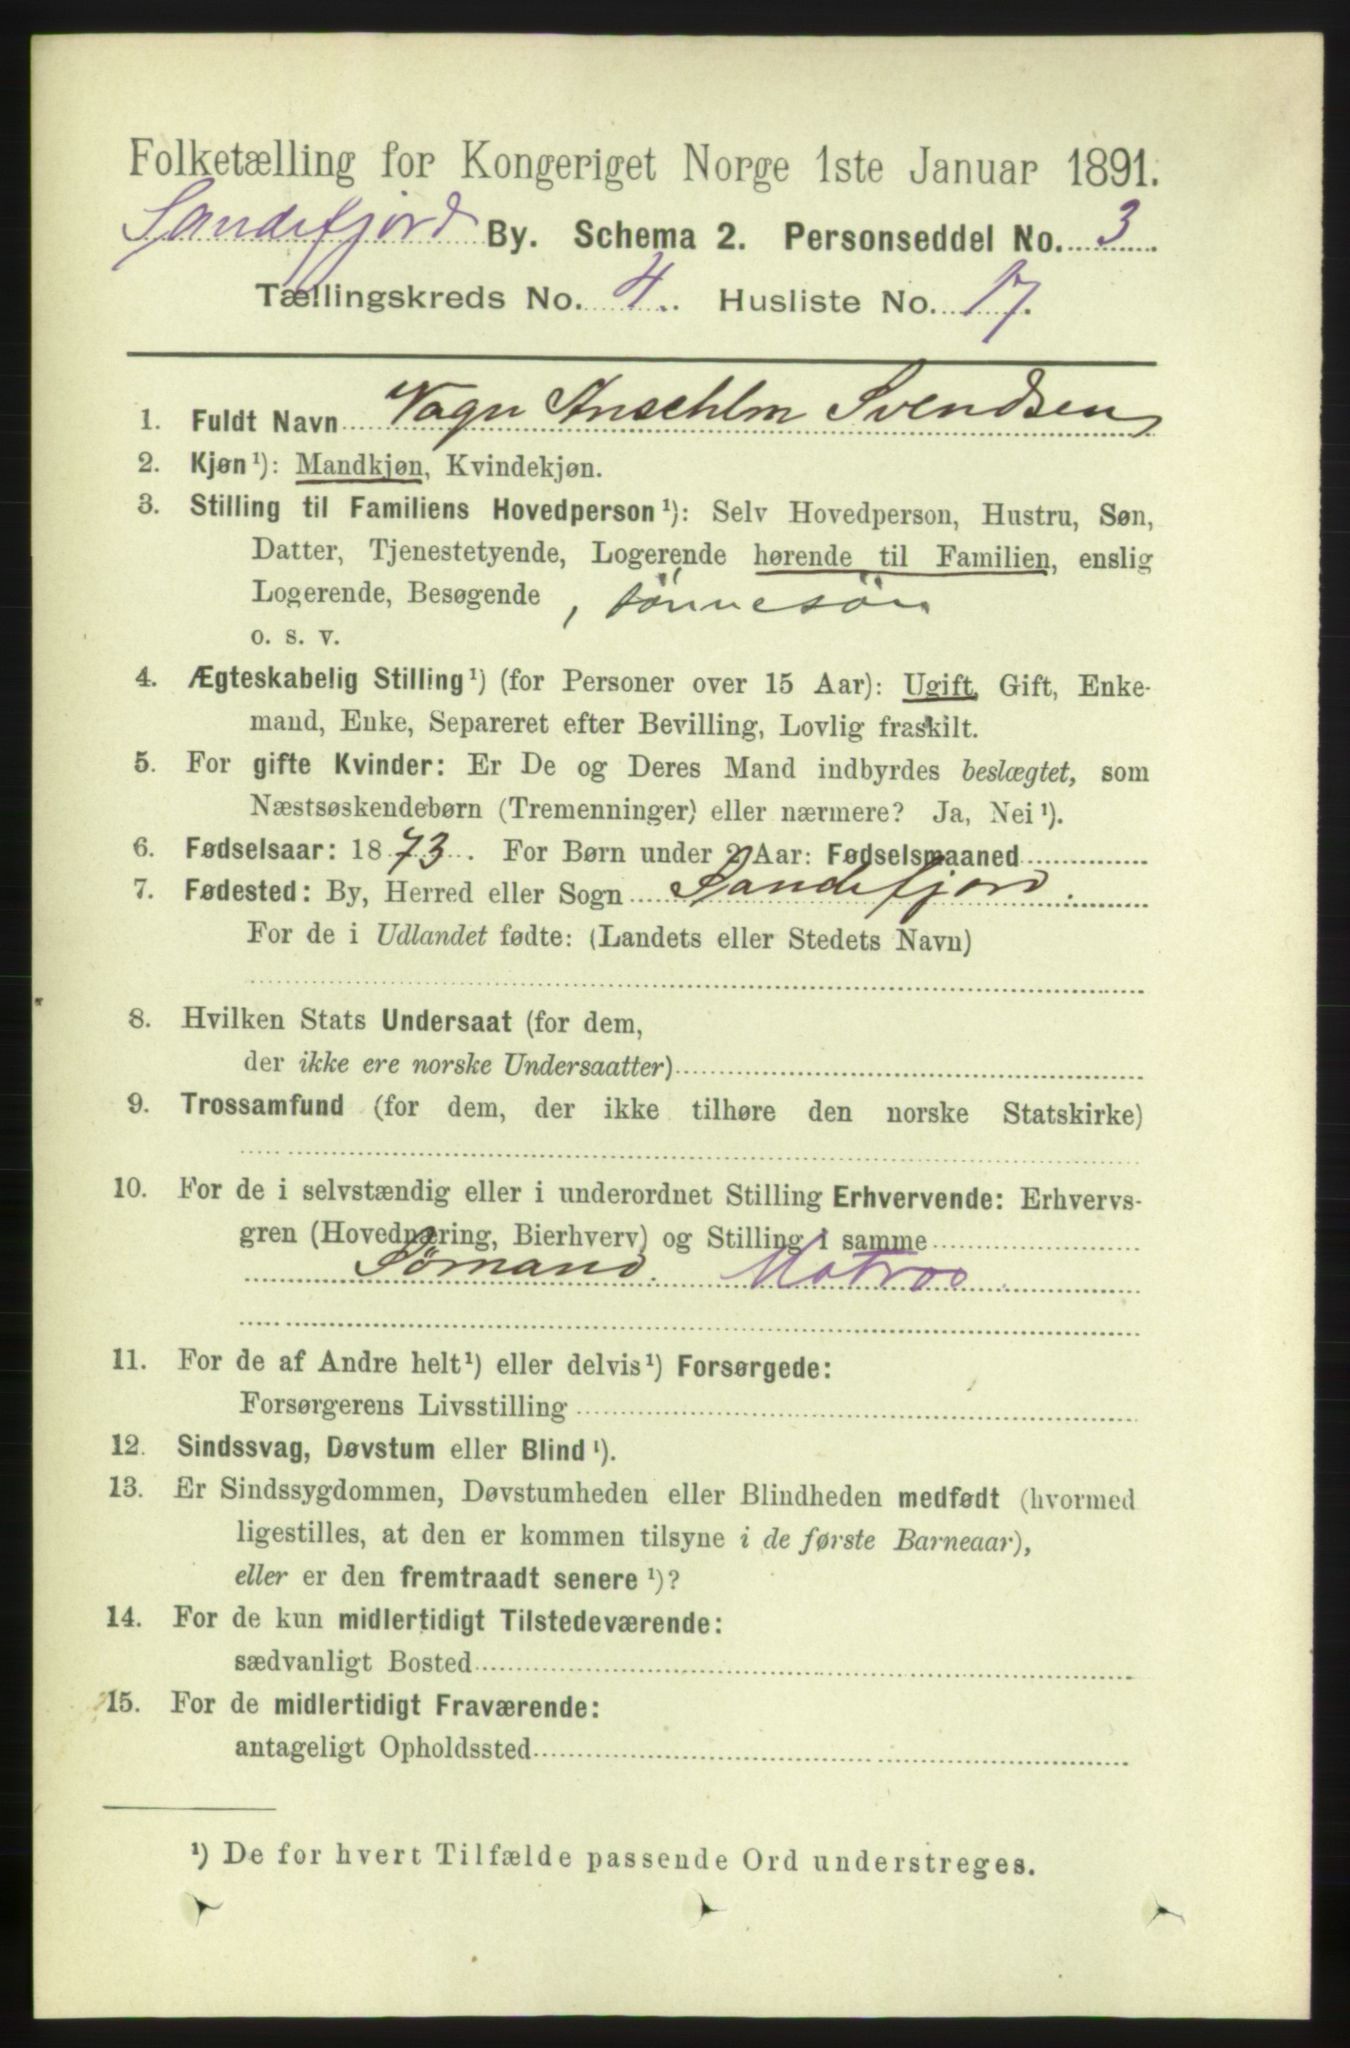 Folketælling for Kongeriget Norge 1ste Januar 1891.
Sandefjord By. Schema 2. Personseddel No. 3
Tællingskreds No. 4. Husliste No. 17.
1. Fuldt Navn Vagn Anschlm Svendsen
2. Kjøn¹): Mandkjøn, Kvindekjøn.
3. Stilling til Familiens Hovedperson¹): Selv Hovedperson, Hustru, Søn,
Datter, Tjenestetyende, Logerende hørende til Familien, enslig
Logerende, Besøgende , sønnesøn
o. s. v.
4. Ægteskabelig Stilling¹) (for Personer over 15 Aar): Ugift, Gift, Enke-
mand, Enke, Separeret efter Bevilling, Lovlig fraskilt.
5. For gifte Kvinder: Er De og Deres Mand indbyrdes beslægtet, som
Næstsøskendebørn (Tremenninger) eller nærmere? Ja, Nei¹).
6. Fødselsaar: 1873. For Børn under 2 Aar: Fødselsmaaned
7. Fødested: By, Herred eller Sogn Sandefjord.
For de i Udlandet fødte: (Landets eller Stedets Navn)
8. Hvilken Stats Undersaat (for dem,
der ikke ere norske Undersaatter)
9. Trossamfund (for dem, der ikke tilhøre den norske Statskirke)
10. For de i selvstændig eller i underordnet Stilling Erhvervende: Erhvervs-
gren (Hovednæring, Bierhverv) og Stilling i samme
Sømand. Matros.
11. For de af Andre helt¹) eller delvis¹) Forsørgede:
Forsørgerens Livsstilling
12. Sindssvag, Døvstum eller Blind¹).
13. Er Sindssygdommen, Døvstumheden eller Blindheden medfødt (hvormed
ligestilles, at den er kommen tilsyne i de første Barneaar),
eller er den fremtraadt senere¹)?
14. For de kun midlertidigt Tilstedeværende:
sædvanligt Bosted
15. For de midlertidigt Fraværende:
antageligt Opholdssted
¹) De for hvert Tilfælde passende Ord understreges.